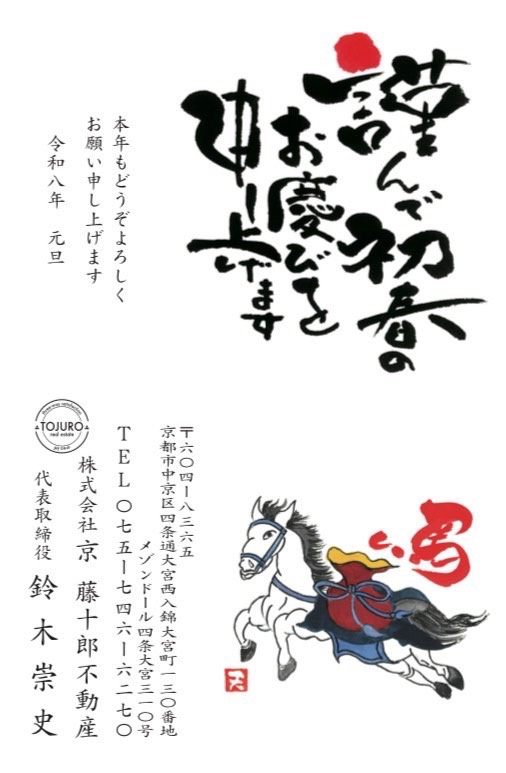 謹んで初春の
お慶びを
申し上げます
本年もどうぞよろしく
お願い申し上げます
令和八年　元旦
馬
〒六〇四ー八三六五
京都市中京区四条通大宮西入錦大宮町一三〇番地
メゾンドール四条大宮三一〇号
TEL〇七五ー七四六ー六二七〇
株式会社 京 藤十郎不動産
代表取締役 鈴木崇史
TOJURO
real estate